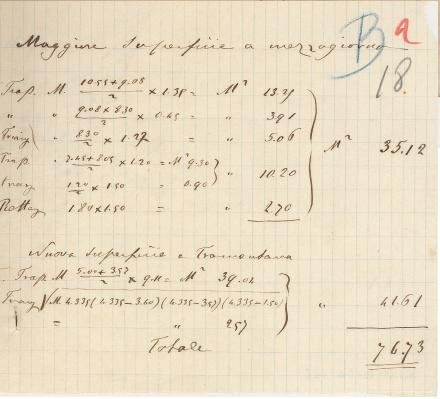 B a
18.
Maggiore Superficie a mezzogiorno
Trap. M. 10.55+9.08/2 × 1.35 = M² 13.25
" " 9.08×8.30/2 × 0.45 = " 3.91
Triang 8.30/2 × 1.27 = " 5.06
M² 35.12
Trap. 7.45+8.05/2 × 1.20 = M² 9.30
10.20
triang 1.20/2 × 1.50 = 0.90
Rettag 1.80×1.50 = " 2.70
Nuova Superficie a Tramontana
Trap. M 5.00+3.57/2 × 9.11 = M² 39.04
Triang √M 4.335(4.335-3.60)(4.335-3.57)(4.335-1.50) " 41.61
= " 2.57
Totale 76.73